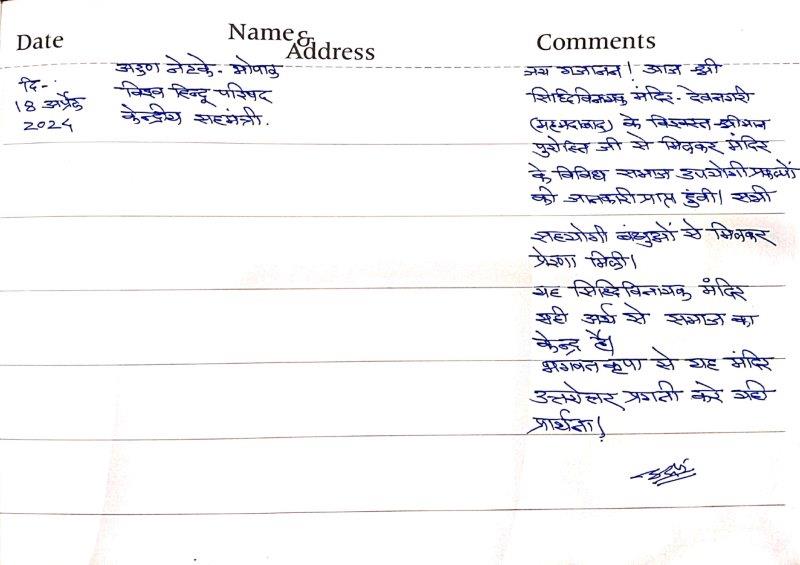 Date
Name &
Address
Comments
दि-
18 अप्रैल
2024
अरुण नेटके - भोपाल
विश्व हिन्दू परिषद
केन्द्रीय सहमंत्री.
जय गजानन! आज श्री
सिध्दिविनायक मंदिर - देवनगरी
(महमदाबाद) के विश्वस्त श्रीमान
पुरोहित जी से मिलकर मंदिर
के विविध समाज उपयोगी प्रकल्पों
की जानकारी प्राप्त हुंवी। सभी
सहयोगी बंधुओं से मिलकर
प्रेरणा मिली।
यह सिध्दिविनायक मंदिर
सही अर्थ से समाज का
केन्द्र है।
भगवत कृपा से यह मंदिर
उत्तरोत्तर प्रगती करे यही
प्रार्थना!